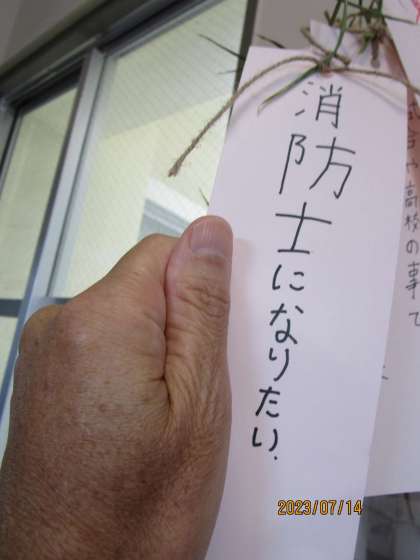 消防士になりたい.
高校の事で
2023/07/14